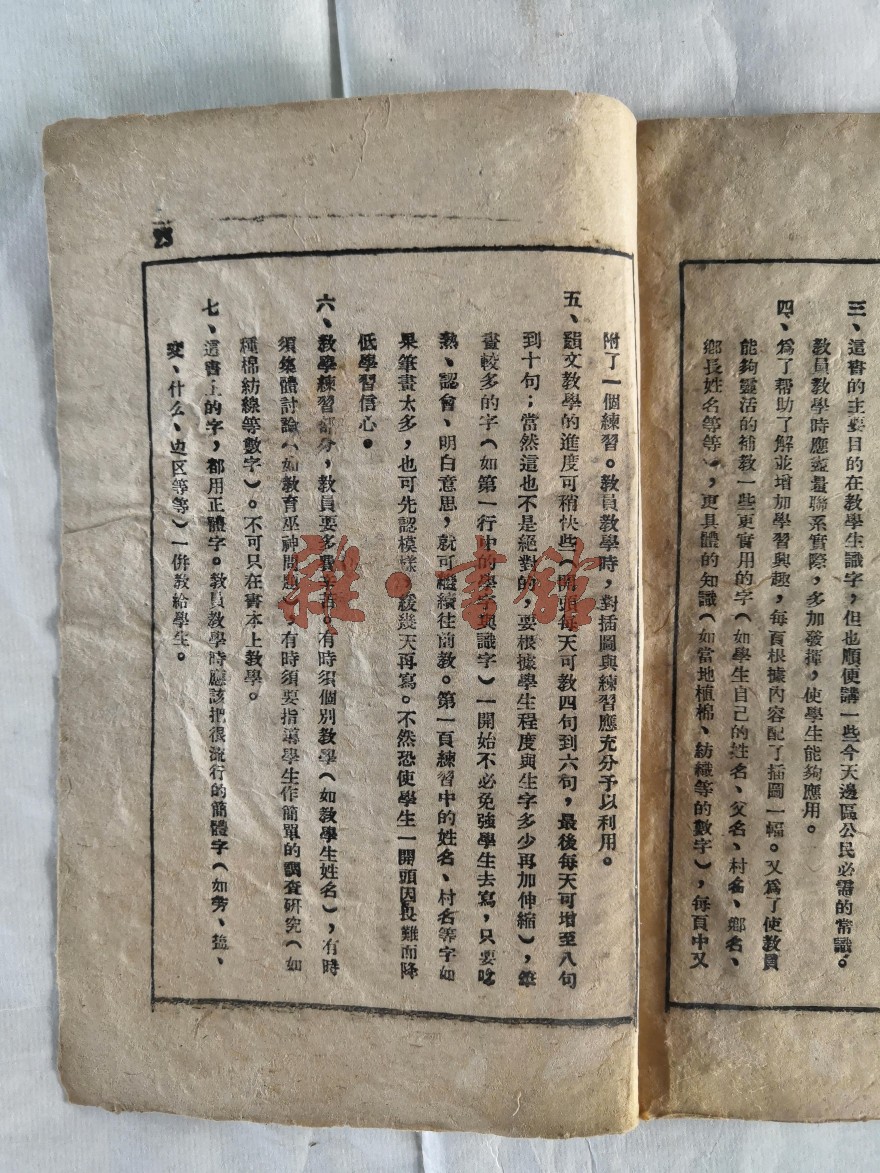 三、這書的主要目的在教學生識字，但也順便講一些今天邊區公民必需的常識。
教員教學時應盡量聯系實際，多加發揮，使學生能夠應用。
四、爲了帮助了解並增加學習興趣，每頁根據內容配了插圖一幅。又爲了使教員
能夠靈活的補教一些更實用的字（如學生自己的姓名、父名、村名、鄉名、
鄉長姓名等等），更具體的知識（如當地植棉、紡織等的數字），每頁中又
附了一個練習。教員教學時，對插圖與練習應充分予以利用。
五、韻文教學的進度可稍快些（開頭每天可教四句到六句，最後每天可增至八句
到十句；當然這也不是絕對的，要根據學生程度與生字多少再加伸縮），筆
畫較多的字（如第一行中的學字與識字）一開始不必免強學生去寫，只要唸
熟、認會、明白意思，就可繼續往前教。第一頁練習中的姓名、村名等字如
果筆畫太多，也可先認模樣，緩幾天再寫。不然恐使學生一開頭因畏難而降
低學習信心。
六、教學練習部分，教員要多費辛苦。有時須個別教學（如教學生姓名），有時
須集體討論（如教育巫神問題），有時須要指導學生作簡單的調查研究（如
種棉紡線等數字）。不可只在書本上教學。
七、這書上的字，都用正體字。教員教學時應該把很流行的簡體字（如劳、
变、什么、边区等等）一併教給學生。
23
雜·書館